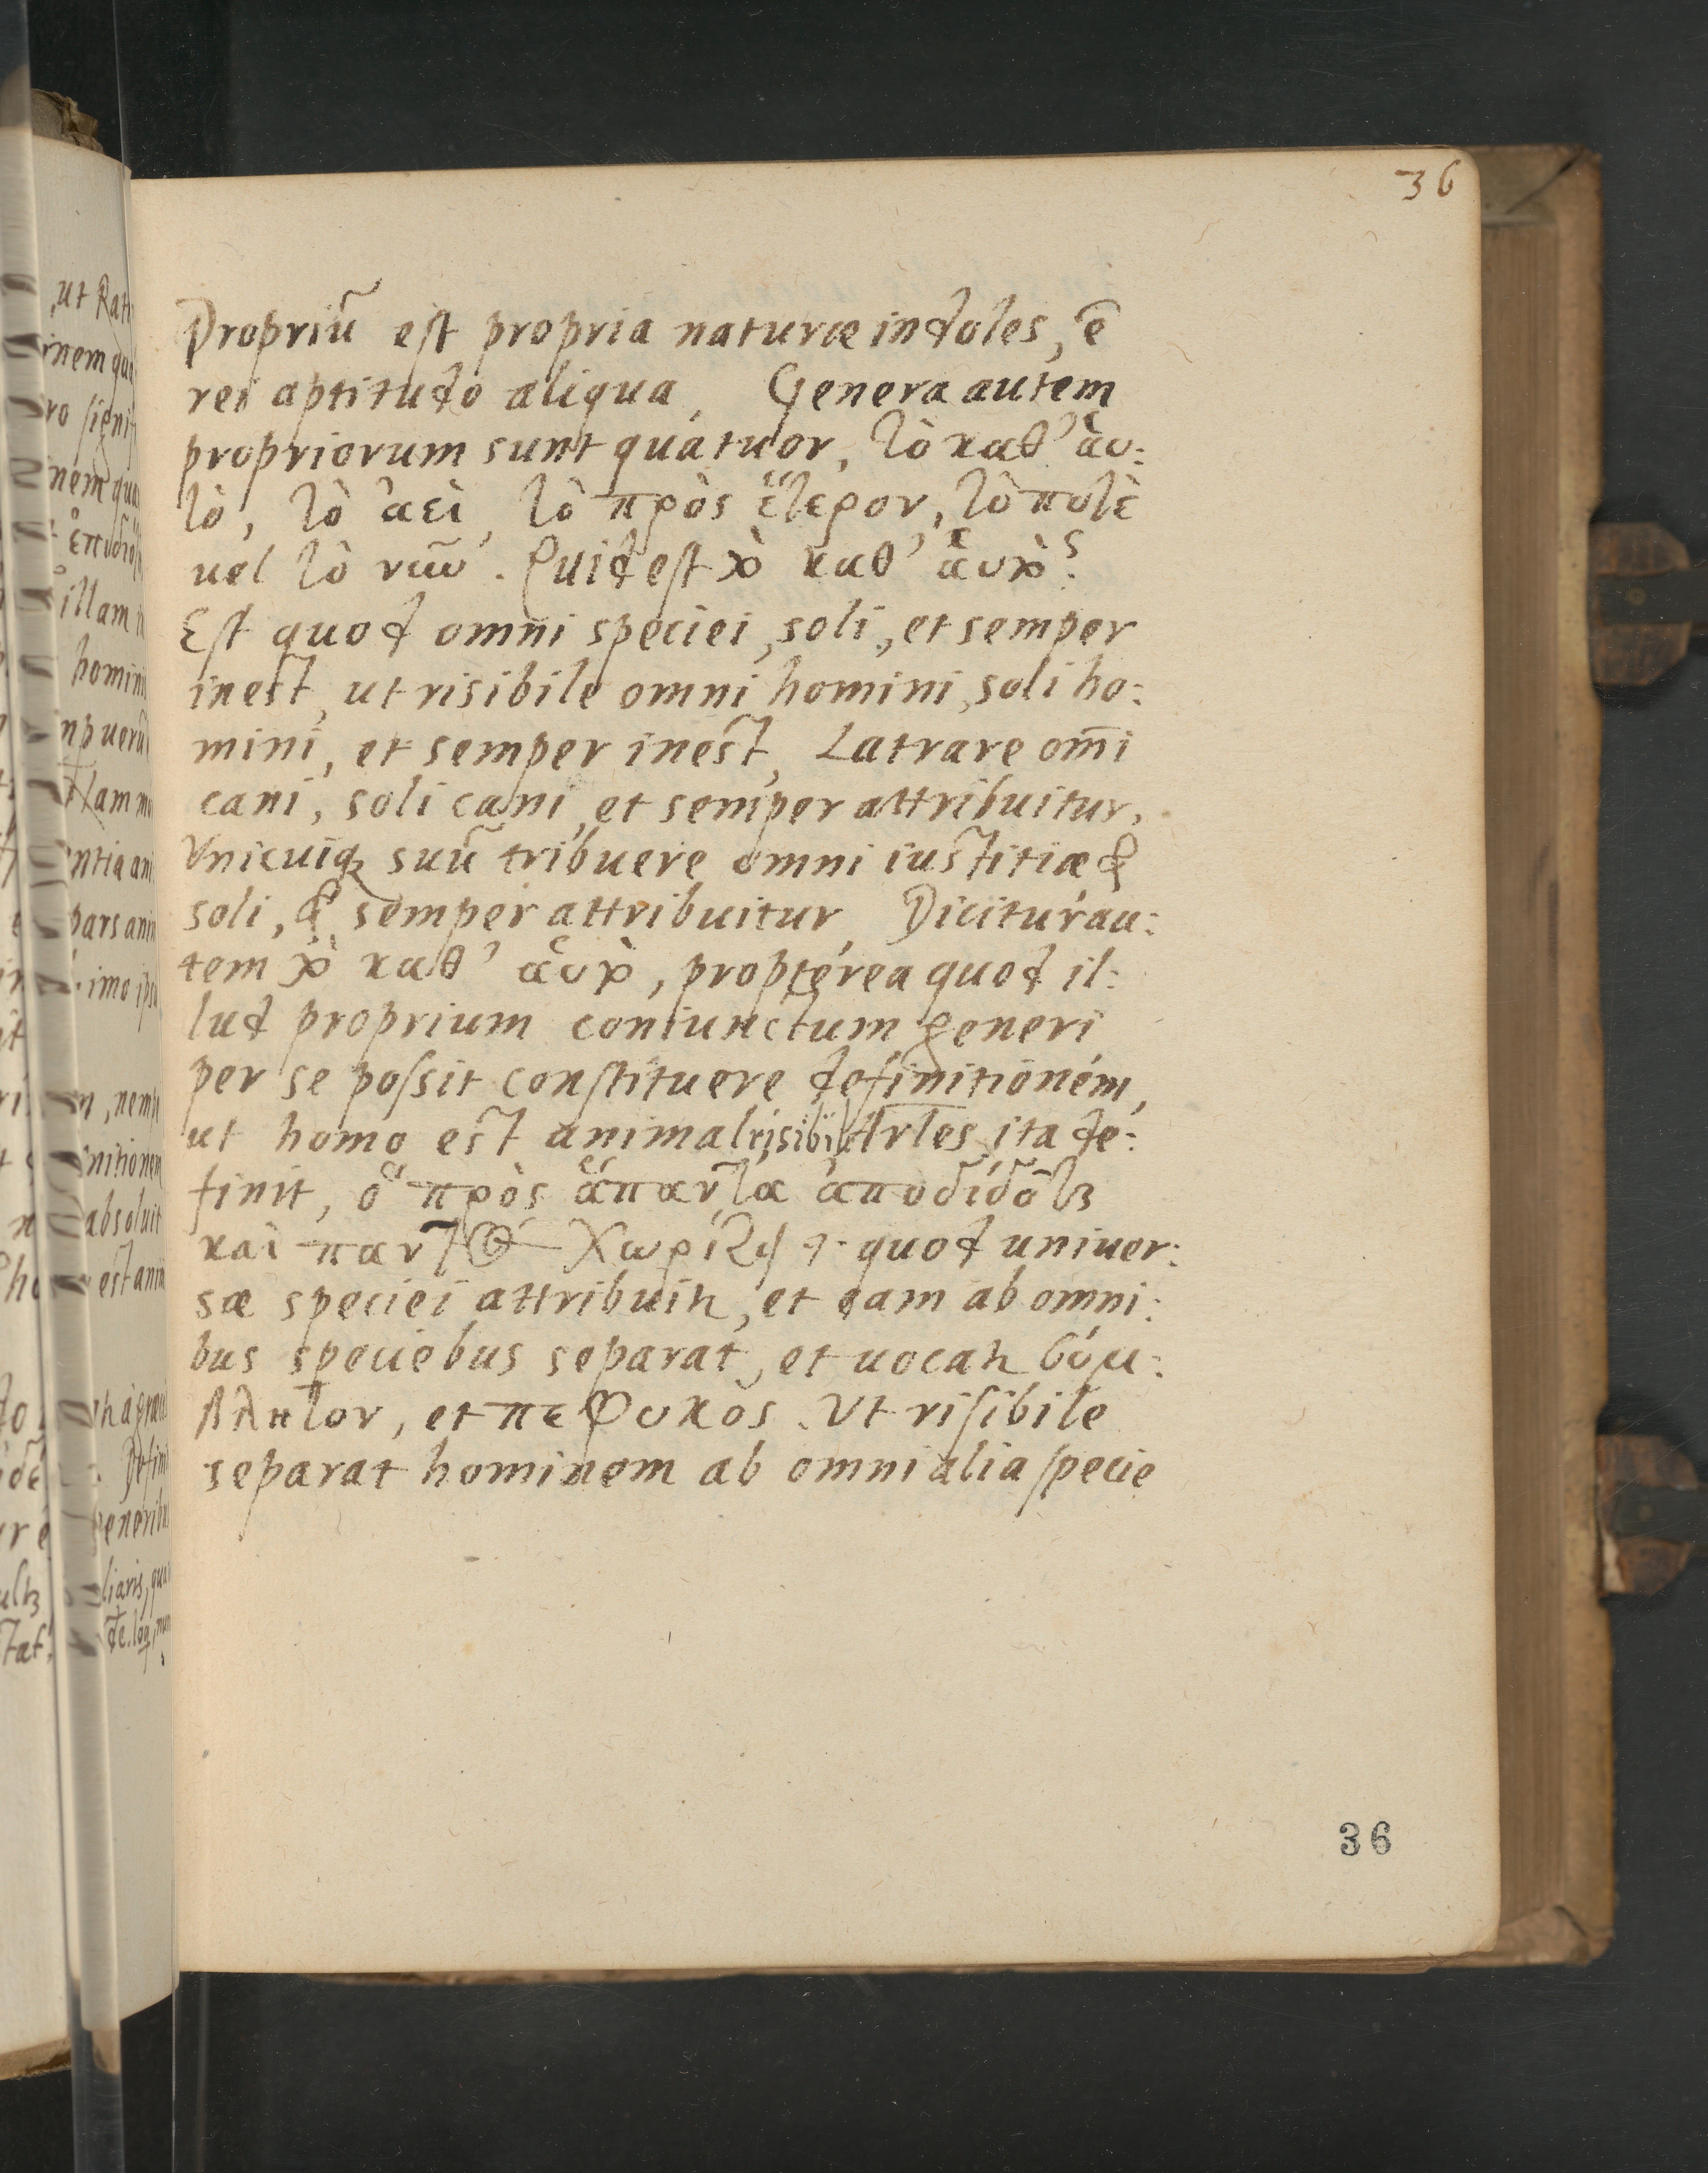 36
Propriũ est propria naturæ indoles, ẽ
rei aptitudo aliqua, Genera autem
propriorum sunt quatuor, τὸ καθ' ἁυ:
τὸ, τὸ ἀεὶ, τὸ πρὸς ἕτερον, τὸ ποτὲ
uel τὸ νῦν. Quid est τὸ καθ' ἁυτὸ?
Est quod omni speciei, soli, et semper
inest, ut risibile omni homini, soli ho:
mini, et semper inest, Latrare om̃i
cani, soli cani, et semper attribuitur,
Vnicuiq; suũ tribuere omni iustitiæ &
soli, & semper attribuitur, Dicitur au:
tem τὸ καθ' ἁυτὸ, propterea quod il:
lud proprium coniunctum generi
per se possit constituere definitionem,
ut homo est animal risibile Artles ita de:
finit, ὃ πρὸς ἅπαντα ἀποδίδοται
καὶ παντὸς χωρίζει quod uniuer:
sæ speciei attribuitur, et eam ab omni:
bus speciebus separat, et uocatur σύμ:
φυτον, et πεφυκὸς. Vt risibile
separat hominem ab omni alia specie
36
ut Rat
inem qua
ro signif
inem qua
illam
homini
npueru
flamm
entia ani
pars anim
imo ipsa
nemp
initionem
absoluit
est anim
liaris, qua